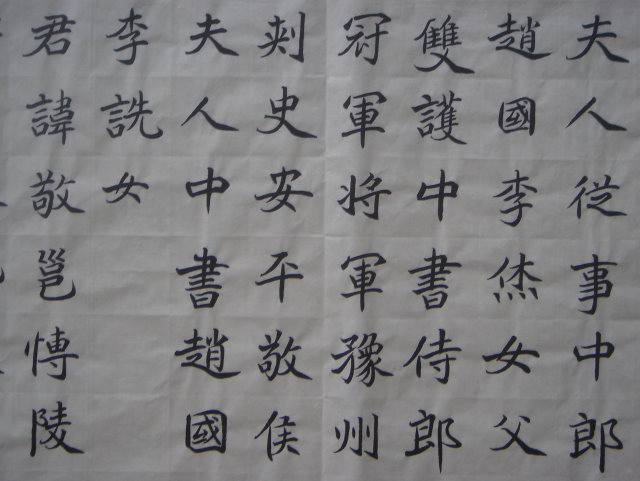 夫人従事中郎
趙國李烋女父
雙護中書侍郎
冠軍将軍豫州
刾史安平敬侯
夫人中書趙國
李詵女
君諱敬邕愽陵